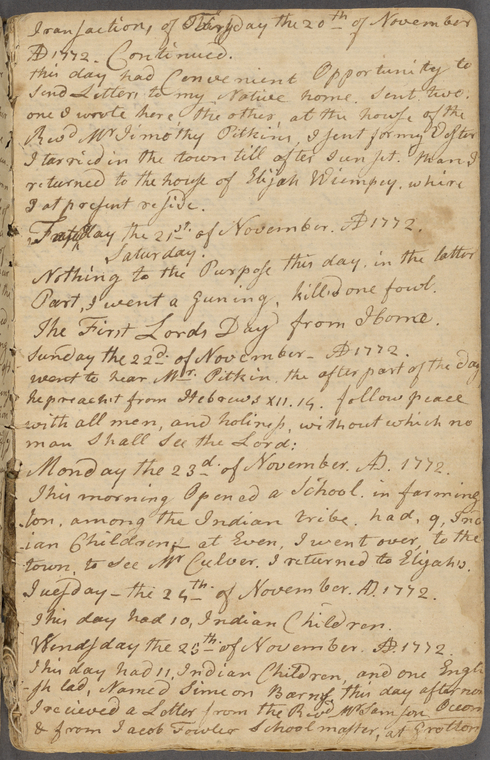 Transactions of Fryday the 20th of November
AD 1772. Continued.
this day had Convenient Opportunity to
Send Letters to my Native home. Sent two.
one I wrote here, the other, at the house of the
Revd Mr Timothy Pitkins, I sent for my
I tarried in the town till after Sun set. than I
returned to the house of Elijah Wimpey. where
I at present reside.
the 21st of November. AD 1772.
Saturday.
Nothing to the Purpose this day. in the latter
Part, I went a guning, killed one fowl.
The First Lords Day from Home.
Sunday the 22d of November - AD 1772.
went to hear Mr Pitkin the after part of the day
he preacht from Hebrews XII. 14. follow peace
with all men, and holiness, without which no
man Shall See the Lord:
Monday the 23d of November. AD. 1772.
This morning Opened a School. in farming
ton. among the Indian tribe. had, 9, Ind
ian Children; at Even, I went over, to the
town, to See Mr Culver. I returned to Elijahs.
Tuesday - the 24th of November. AD. 1772.
This day had 10, Indian Children.
Wendsday the 25th of November. AD. 1772.
This day had 11, Indian Children, and one Engli
-sh lad, Named Simeon Barns, this day afternoon
I recieved a Letter from the Revd Mr Samson Occom
& from Jacob Fowler Schoolmaster, at Grotton